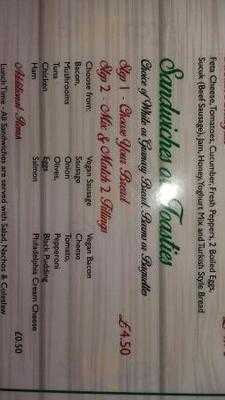 Feta Cheese, Tomatoes, Cucumber, Fresh Peppers, 2 Boiled Eggs,
Sucuk (Beef Sausage), Jam, Honey, Yoghurt Mix and Turkish Style Bread
Sandwiches or Toasties
Choice of White or Granary Bread, Buns or Baguettes
Step 1 - Choose Your Bread
Step 2 - Mix & Match 2 Fillings £4.50
Choose from: Vegan Sausage Vegan Bacon
Bacon, Sausage Cheese
Mushrooms Onion Tomato,
Tuna Olives, Pepperoni
Chicken Eggs Black Pudding
Ham Salmon Philadelphia Cream Cheese
Additional Items £0.50
Lunch Time - All Sandwiches are served with Salad, Nachos & Coleslaw